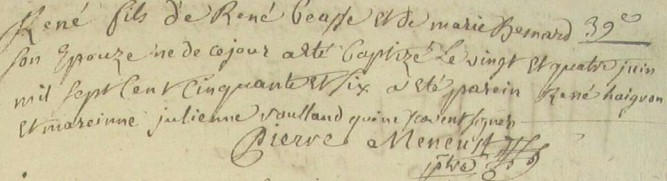 René fils de René beasse et de marie Bemard 39e
son Epouze ne de ce jour a eté baptizé Le vingt et quatre juin
mil sept Cent Cinquante et six a eté parein René haigron
et mareinne julienne vaulland qui ne scavent signer
Pierre Meneust
ptre